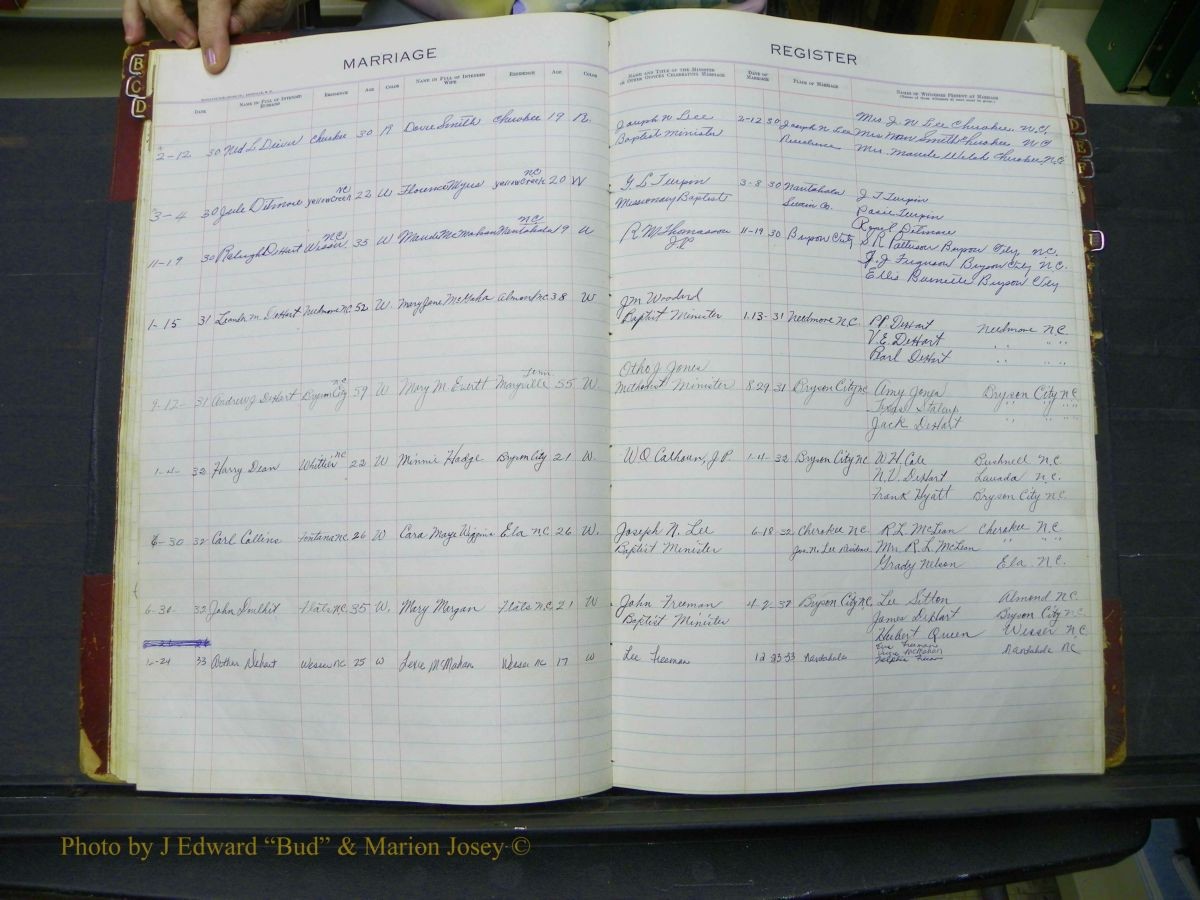 MARRIAGE
REGISTER
DATE NAME IN FULL OF INTENDED HUSBAND RESIDENCE AGE COLOR NAME IN FULL OF INTENDED WIFE RESIDENCE AGE COLOR NAME AND TITLE OF THE MINISTER OR OTHER OFFICER CELEBRATING MARRIAGE DATE OF MARRIAGE PLACE OF MARRIAGE NAMES OF WITNESSES PRESENT AT MARRIAGE
B
C
D
D
E
F
2-12 30 Ned L Driver Cherokee 30 R Dovie Smith Cherokee 19 R. Joseph N Lee 2-12 30 Joseph N Lee Mrs. J. N Lee Cherokee, N.C.
Baptist Minister Residence Mrs Smith Cherokee N.C
Mrs. Maude Welch Cherokee, N.C
NC NC
3-4 30 Jule Ditmore Yellow Creek 22 W Florence Myers Yellow Creek 20 W G L Turpin 3-8 30 Nantahala J T Turpin
Missionary Baptist Swain Co. Turpin
Ditmore
NC NC
11-19 30 Raleigh DeHart Wesser 35 W Maude McMahan Nantahala 19 W R M Thomasson 11-19 30 Bryson City S R Patterson Bryson City, N.C.
J.P. F. J Ferguson Bryson City N.C.
Ellis Burnette Bryson City
1-15 31 Leander M. DeHart Needmore NC 52 W. Mary Jane McMaha Almond N.C 38 W J M Woodard
Baptist Minister 1-13-31 Needmore N.C. P.P. DeHart Needmore N.C.
V.E. DeHart " " "
Pearl DeHart " " "
Otho J Jones
NC Tenn
9-12-31 Andrew J DeHart Bryson City 59 W Mary M. Everett Maryville 55 W. Methodist Minister 8-29 31 Bryson City NC Amy Jones Bryson City N.C
Staley " " "
Jack DeHart " " "
1-4- 32 Harry Dean Whittier NC 22 W Minnie Hodge Bryson City 21 W. W Q Calhoun, J.P. 1-4 32 Bryson City NC W.H. Cole Bushnell N.C.
N.V. DeHart Lauada N.C.
Frank Hyatt Bryson City N.C
6-30 32 Carl Collins Fontana NC 26 W Cora Maye Wiggins Ela N.C 26 W. Joseph N. Lee 6-18 32 Cherokee N.C R.L. McLean Cherokee N.C.
Baptist Minister Jos. N. Lee Residence Mrs R.L. McLean " " "
Grady Nelson Ela N.C.
6-30 32 John Douthit Flats N.C. 35 W. Mary Morgan Flats N.C. 21 W John Freeman 4-2-37 Bryson City N.C. Lee Sitton Almond N.C
Baptist Minister James DeHart Bryson City N.C
Hubert Queen Wesser N.C
33 Dehart Wesser NC 25 W Lexie McMahan Wesser NC 17 W Lee Freeman 12 23 33 Nantahala Freeman Nantahala NC
McMahan
Photo by J Edward “Bud” & Marion Josey ©